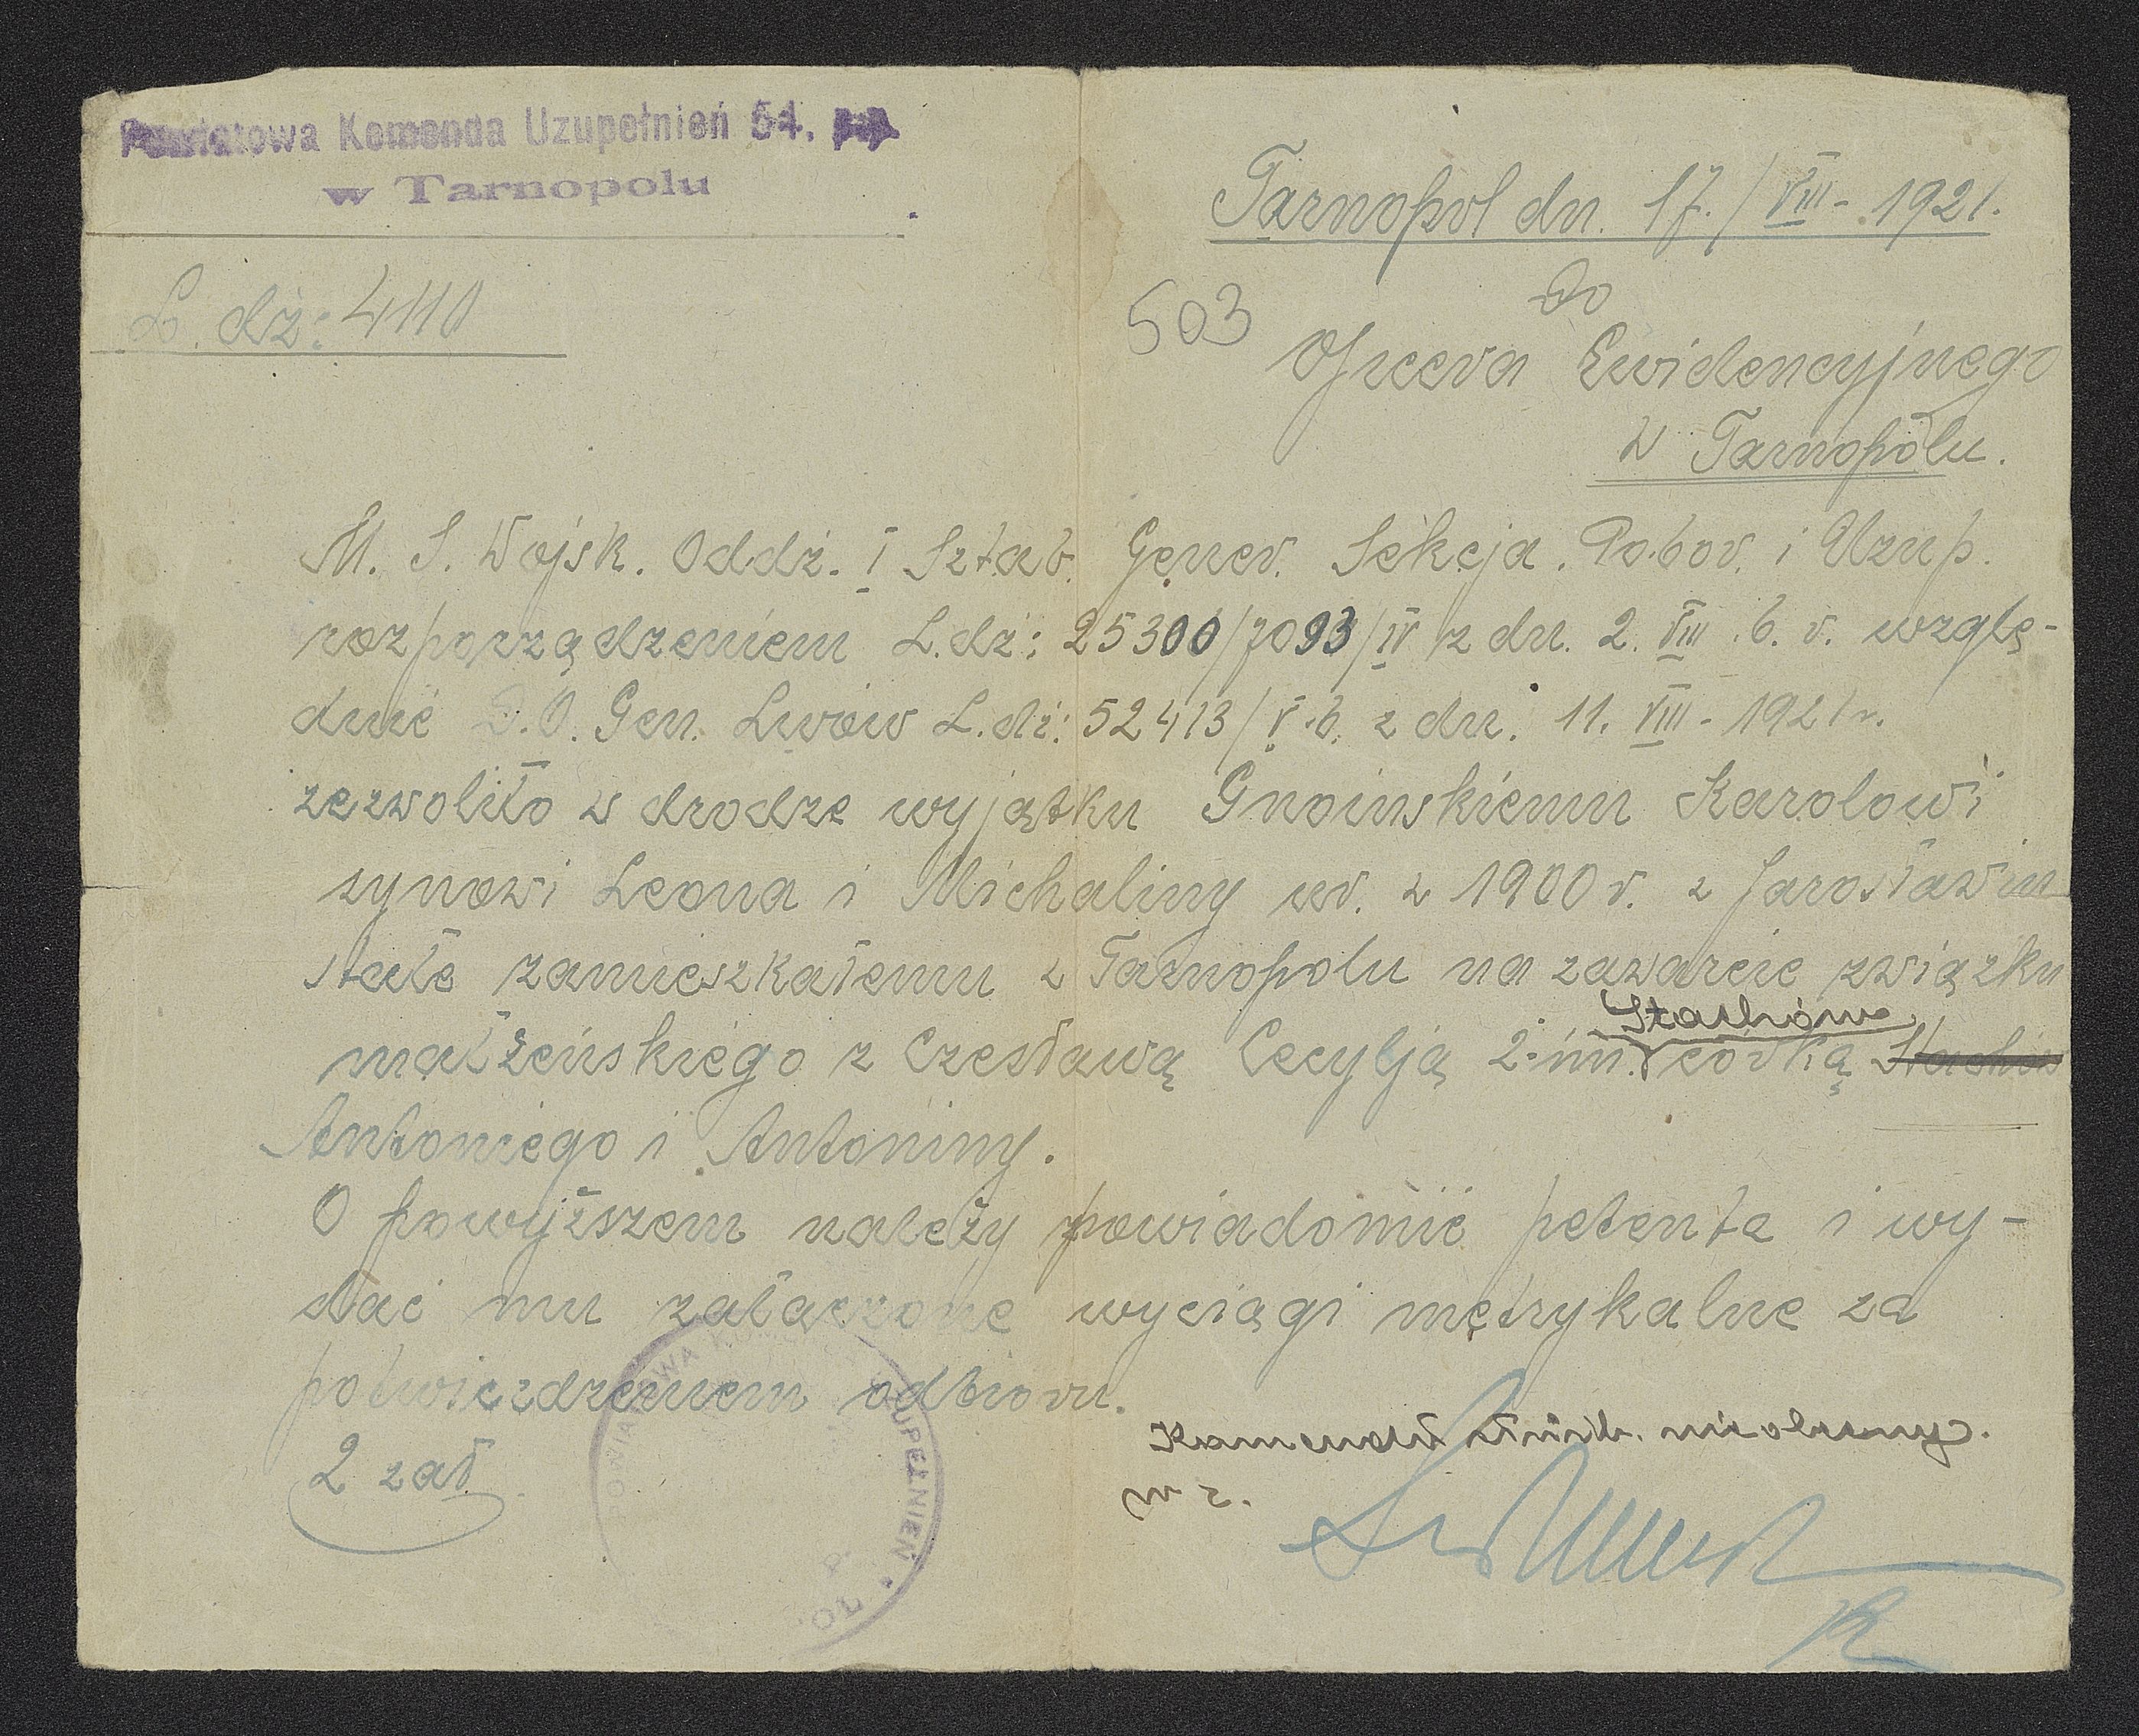 Powiatowa Komenda Uzupełnień 54. pp
w Tarnopolu
Tarnopol dn. 17./VIII - 1921.
L. dz: 4110
503
Do
Oficera Ewidencyjnego
w Tarnopolu.
M. S. Wojsk. Oddz. I Sztab. Gener. Sekcja. Pobor. i Uzup.
rozporządzeniem L.dz: 25300/7093/IV z dn. 2. VIII. b. r. wzglę-
dnie D.O. Gen. Lwów L.dz: 52413/V.b. z dn. 11. VIII - 1921 r.
zezwoliło w drodze wyjątku Gnoinskiemu Karolowi
synowi Leona i Michaliny ur. w 1900 r. w Jarosławiu
stale zamieszkałemu w Tarnopolu na zawarcie związku
małżeńskiego z Czesławą Cecylją 2-im. Stachów córką Stachów
Antoniego i Antoniny.
O powyższem należy powiadomić petenta i wy-
dać mu załączone wyciągi metrykalne za
potwierdzeniem odbioru.
2 zał.
POWIATOWA KO UZUPEŁNIEŃ